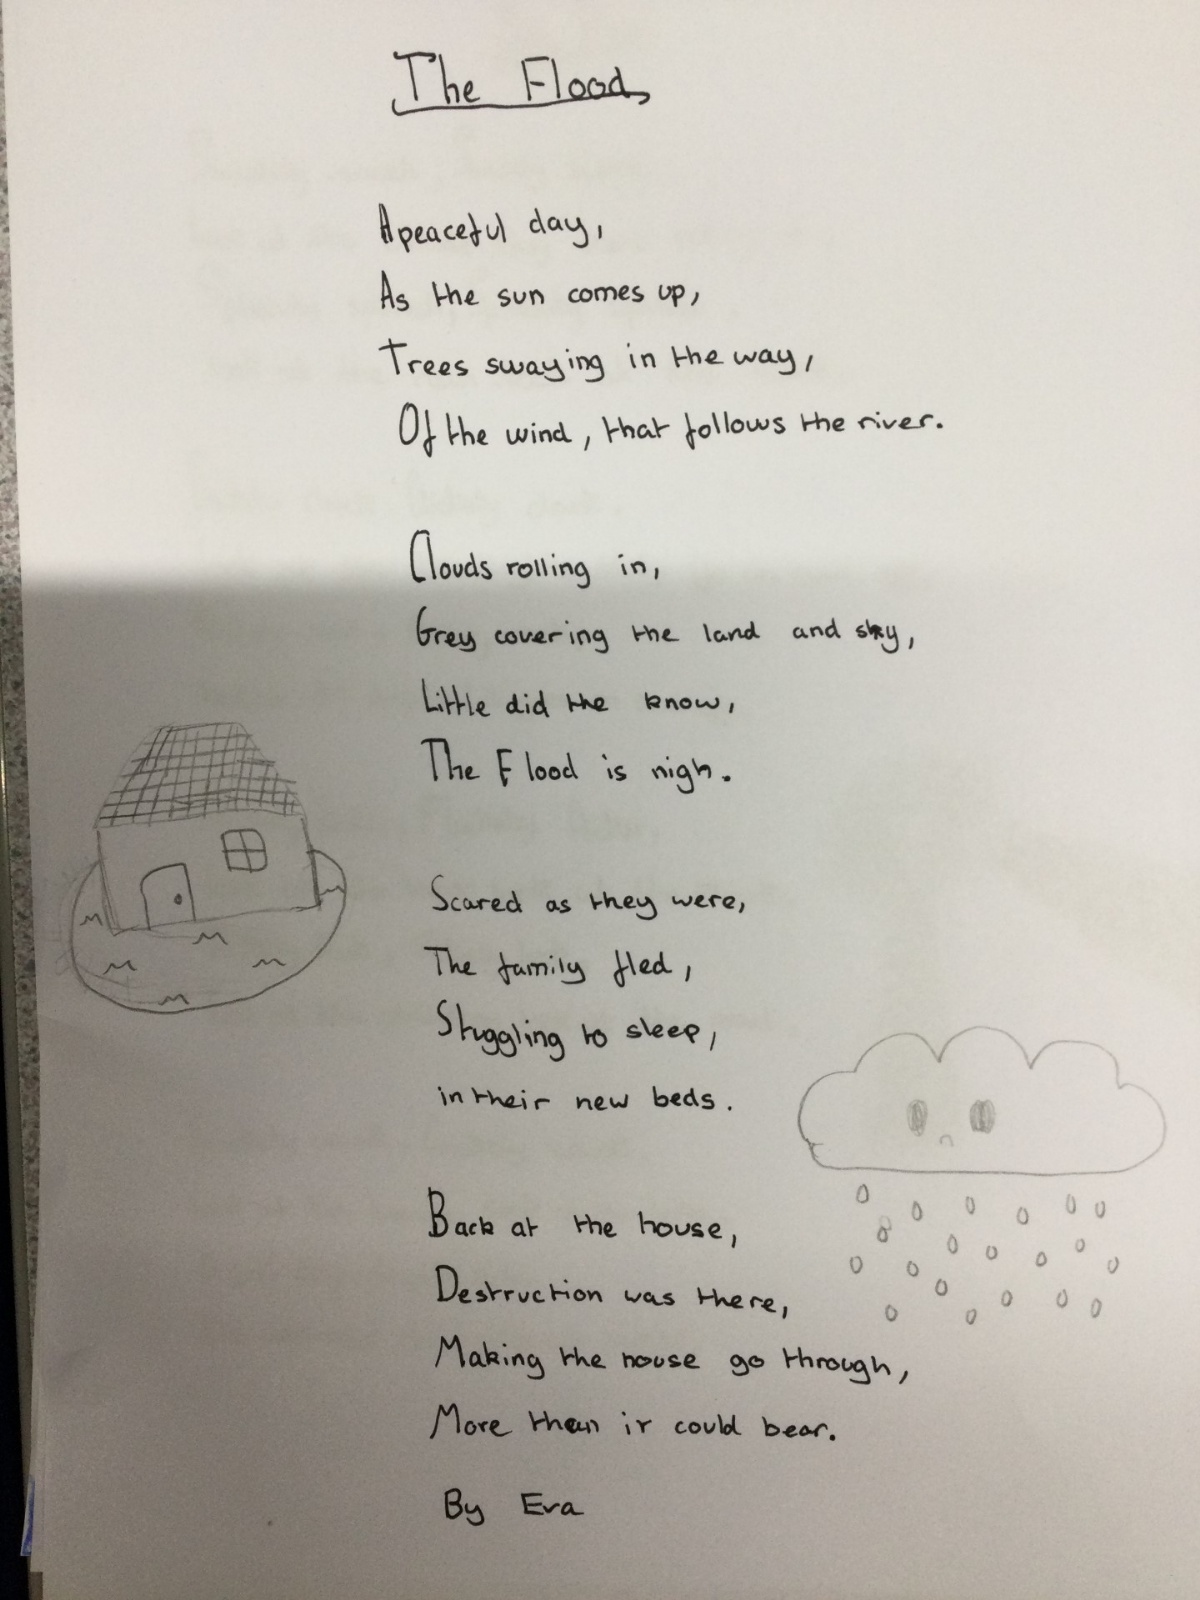 The Flood
A peaceful day,
As the sun comes up,
Trees swaying in the way,
Of the wind, that follows the river.
Clouds rolling in,
Grey covering the land and sky,
Little did the know,
The Flood is nigh.
Scared as they were,
The family fled,
Stuggling to sleep,
in their new beds.
Back at the house,
Destruction was there,
Making the house go through,
More than it could bear.
By Eva